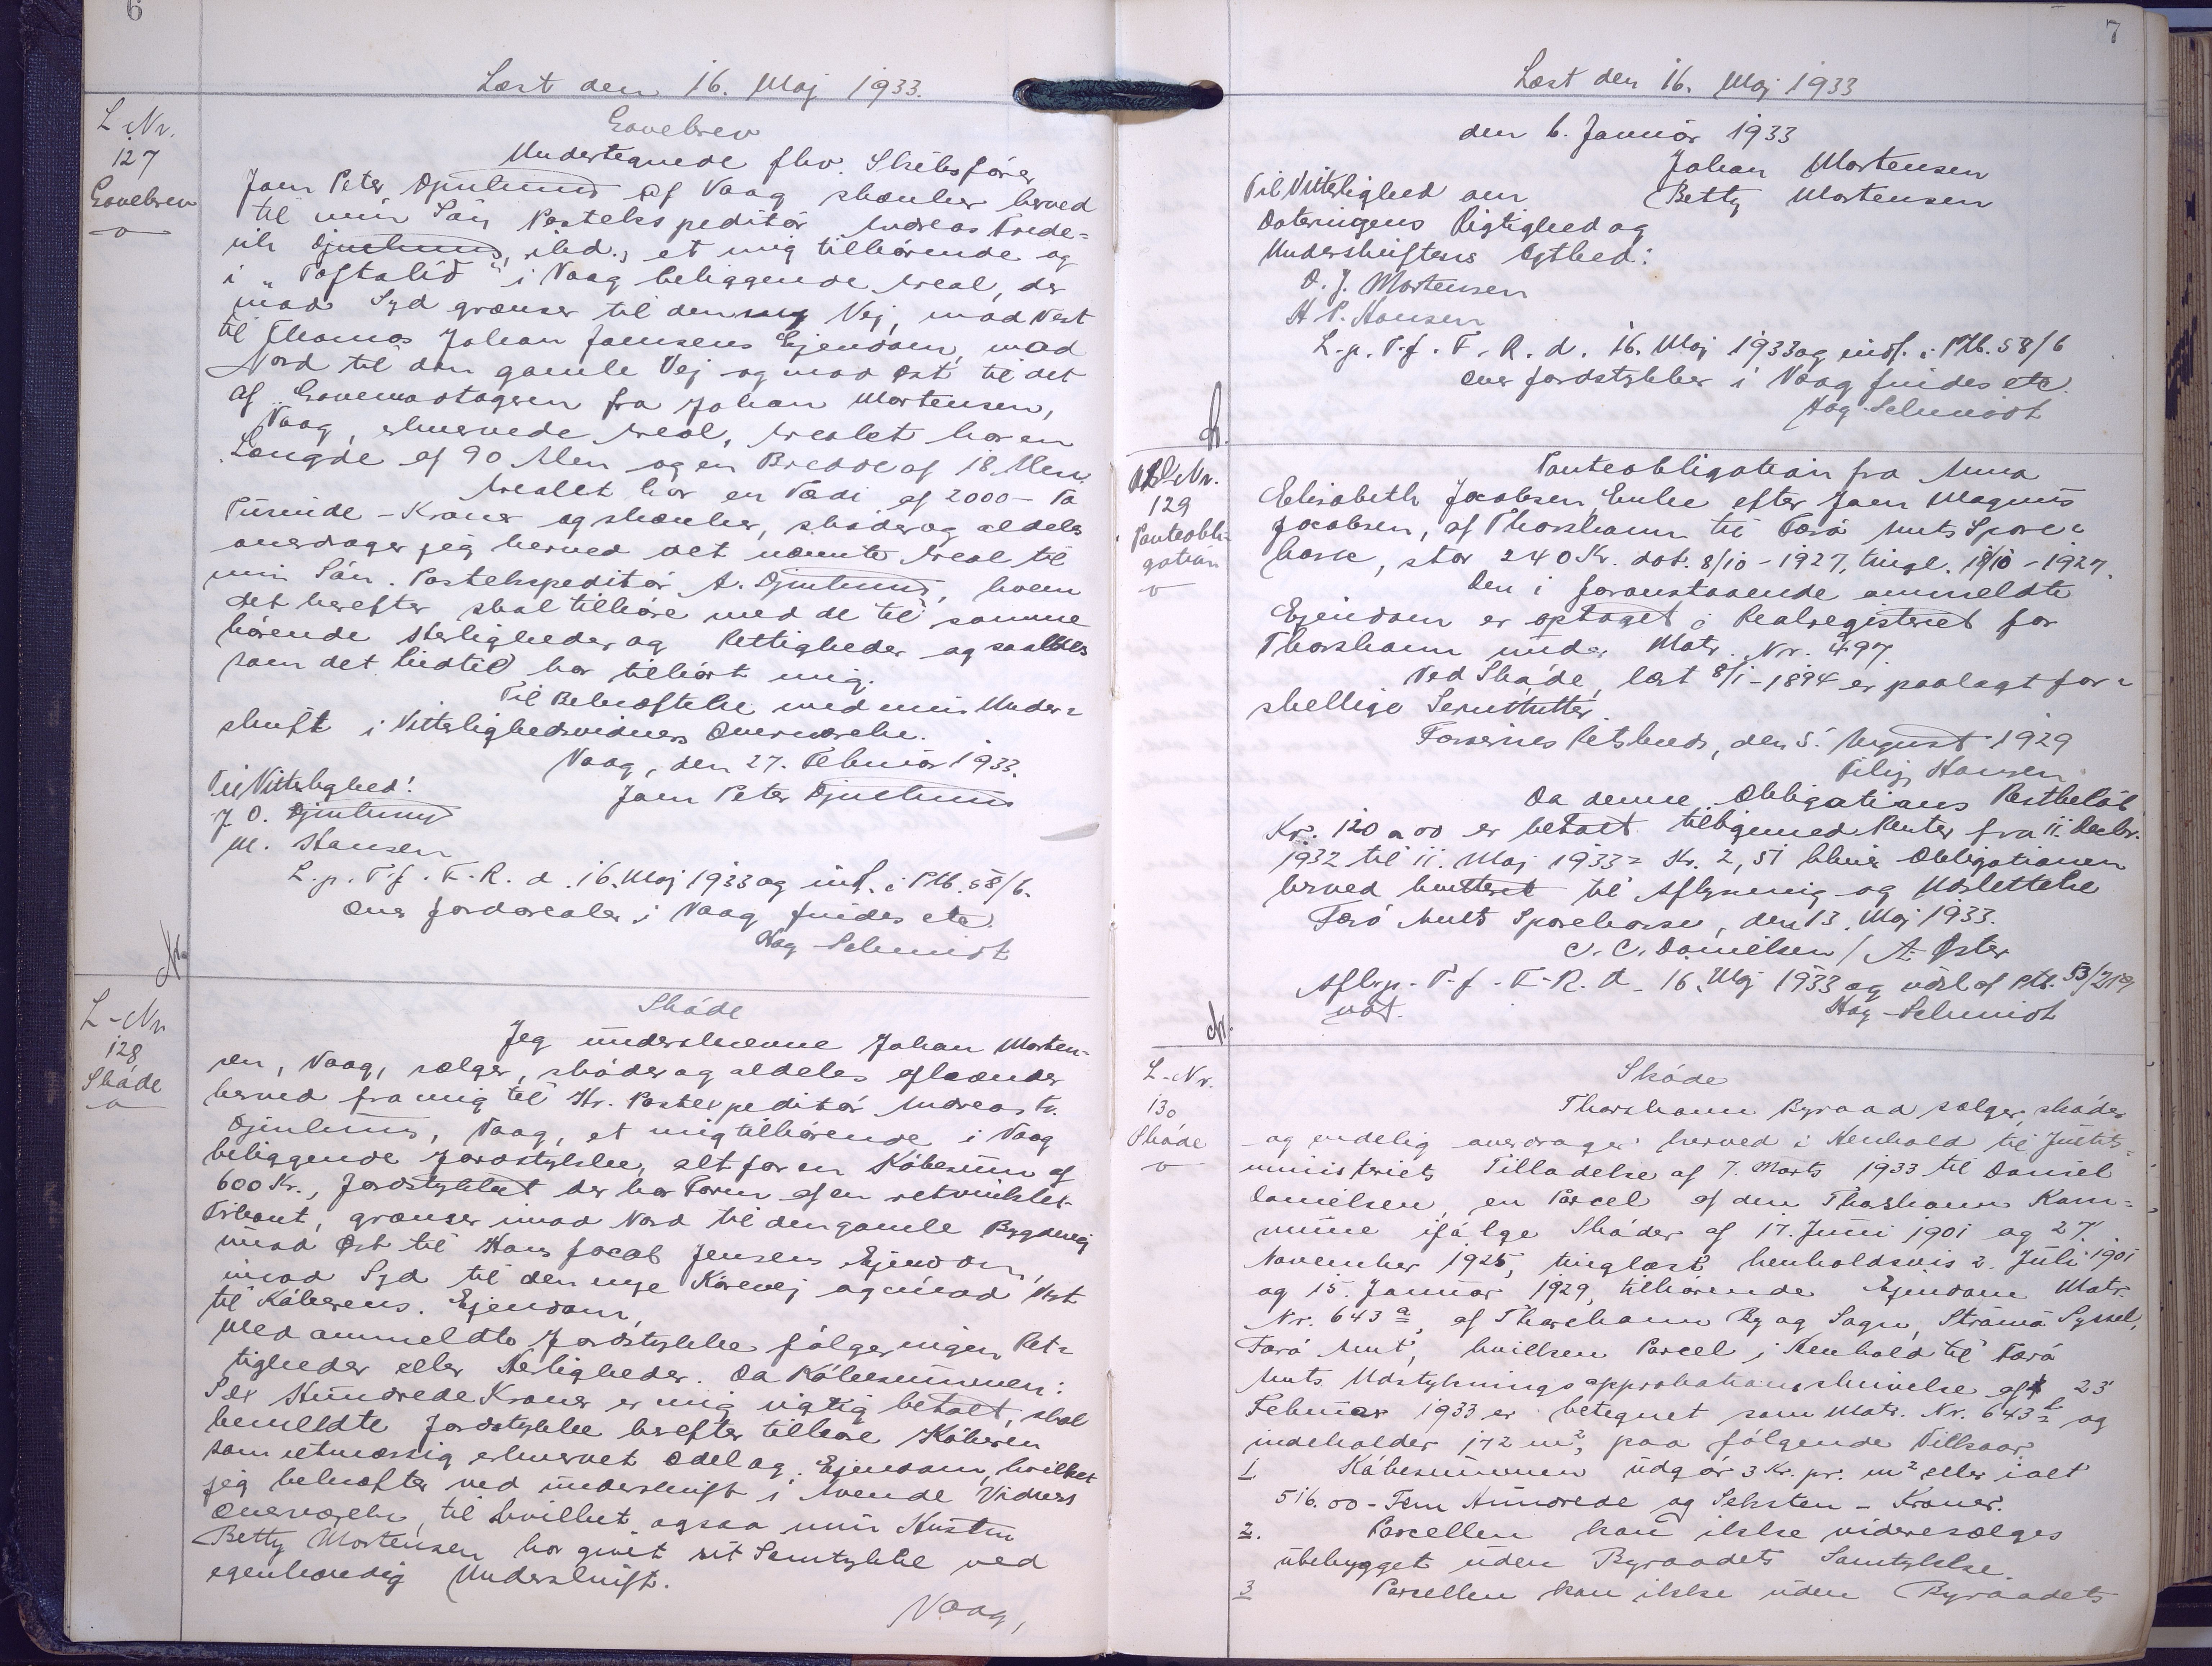 6
Læst den 16. Maj 1933.
L-Nr.
127
Gavebrev
Gavebrev
Undertegnede fhv. Skibsfører
Joen Peter Djurhuus af Vaag skænker herved
til min Søn Postekspeditør Andreas Frede-
rik Djurhuus, ibd., et mig tilhørende og
i "Toftalið" i Vaag beliggende Areal, der
mod Syd grænser til den ny Vej, mod Vest
til Thomas Johan Jensens Ejendom, mod
Nord til den gamle Vej og mod Øst til det
af Gavemodtageren fra Johan Mortensen,
Vaag, erhvervede Areal, Arealet har en
Længde af 90 Alen og en Bredde af 18 Alen.
Arealet har en Vædi af 2000 - To
Tusinde - Kroner og skænker, skøder og aldeles
overdrager jeg herved det nævnte Areal til
min Søn. Postekspeditør A. Djurhuus, hvem
det herefter skal tilhøre med de til samme
hørende Herligheder og Rettigheder og saaledes
som det hidtil har tilhørt mig.
Til Bekræftelse med min Under-
skrift i Vitterlighedsvidners Overværelse.
Vaag, den 27. Februar 1933.
Til Vitterlighed!
Joen Peter Djurhuus
J. O. Djurhuus
M. Hansen
L. p. T. f. F. R. d. 16. Maj 1933 og indf. i Ptb. 58/6.
Over Jordarealer i Vaag findes etc.
Aag Schmidt
L-Nr
128
Skøde
Skøde
Jeg underskrevne Johan Morten-
sen, Vaag, sælger, skøder og aldeles afhænder
herved fra mig til Hr. Postexpeditør Andreas Fr.
Djurhuus, Vaag, et mig tilhørende i Vaag
beliggende Jordstykke, alt for en Købesum af
600 Kr., Jordstykket der har Form af en retvinklet
Firkant, grænser imod Nord til den gamle Bygdevej
imod Øst til Hans Jacob Jensens Ejendom,
imod Syd til den nye Kørevej og imod Vest
til Køberens. Ejendom,
Med anmeldte Jordstykke følger ingen Ret-
tigheder eller Herligheder. Da Købesummen:
Sex Hundrede Kroner er mig rigtig betalt, skal
bemeldte Jordstykke herefter tilhøre Køberen
som retmæssig erhvervet Odel og Ejendom, hvilket
jeg bekræfter ved underskrift i tvende Vidners
Overværelse, til hvilket ogsaa min Hustru
Betty Mortensen har givet sit Samtykke ved
egenhændig Underskrift.
Vaag,
7
Læst den 16. Maj 1933
den 6. Januar 1933
Johan Mortensen
Til Vitterlighed om Betty Mortensen
Dateringens Rigtighed og
Underskriftens Ægthed:
O. J. Mortensen
H P. Hansen
L. p. T. f. F. R. d. 16. Maj 1933 og indf. i Ptb. 58/6
Over Jordstykker i Vaag findes etc.
Aag Schmidt
Nr.
129
Panteobli-
gation
Panteobligation fra Anna
Elisabeth Jacobsen, Enke efter Joen Magnus
Jacobsen, af Thorshavn til Færø Amts Spare-
kasse, stor 240 Kr. dat. 8/10 - 1927, tingl. 18/10 - 1927.
Den i foranstaaende anmeldte
Ejendom er optaget i Realregisteret for
Thorshavn under Matr. Nr. 497.
Ved Skøde, læst 8/1 - 1894 er paalagt for-
skellige Servitutter.
Færøernes Retskreds, den 5. August 1929
Filip Hansen
Da denne Obligations Restbeløb
Kr. 120,00 er betalt tilligemed Renter fra 11. Decbr.
1932 til 11. Maj 1933 = Kr. 2,51 bliver Obligationen
herved kvitteret til Aflysning og Udslettelse
Færø Amts Sparekasse, den 13. Maj 1933.
C. C. Danielsen / A. Øster
Aflyp. T. f. F. R. d. 16. Maj 1933 og udsl. af Ptb. 53/219
not.
Aag Schmidt
L-Nr.
130
Skøde
Skøde
Thorshavn Byraad sælger, skøder
og endelig overdrager herved i Henhold til Justits-
ministeriets Tilladelse af 7. Marts 1933 til Daniel
Danielsen, en Parcel af den Thorshavn Kom-
mune ifølge Skøder af 17. Juni 1901 og 27.
November 1925, tinglæst henholdsvis 2. Juli 1901
og 15. Januar 1929, tilhørende Ejendom Matr.
Nr. 643 a, af Thorshavn By og Sogn, Strømø Syssel,
Færø Amt, hvilken Parcel i Henhold til Færø
Amts Udstykningsapprobationsskrivelse af 23
Februar 1933 er betegnet som Matr. Nr. 643 og
indeholder 172 m², paa følgende Vilkaar:
1. Købesummen udgør 3 Kr. pr. m² eller ialt
516.00 - Fem Hundrede og Seksten - Kroner.
2. Parcellen kan ikke videresælges
ubebygget uden Byraadets Samtykke.
3 Parcellen kan ikke uden Byraadets